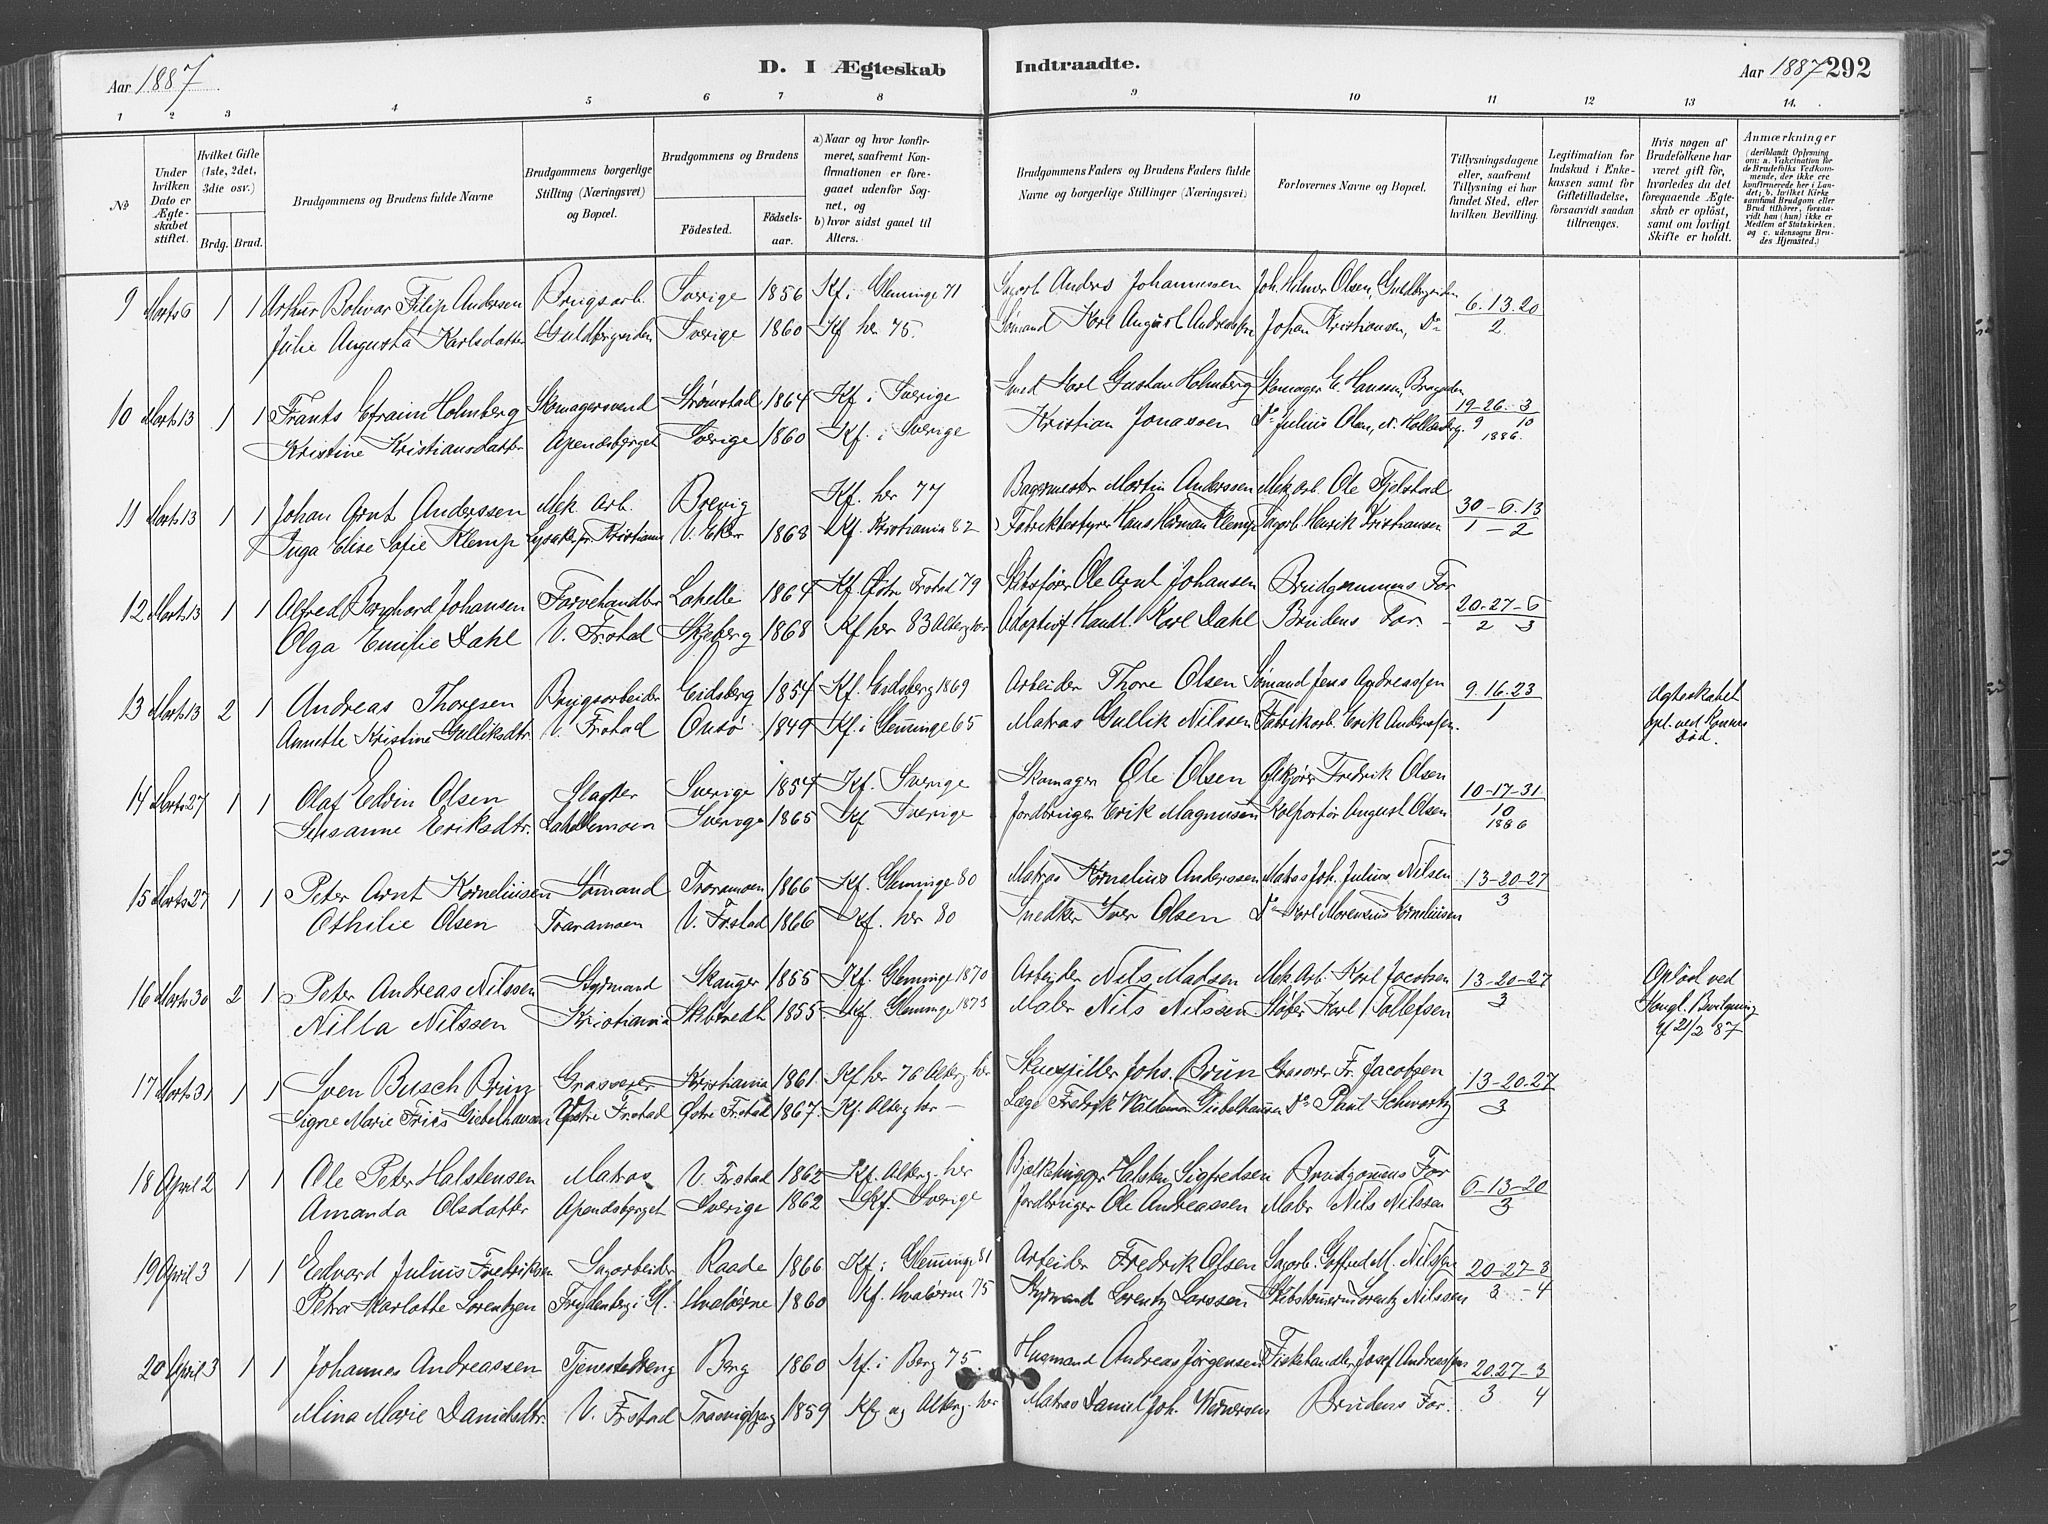 Aar 1887
D. I Ægteskab
Indtraadte.
Aar 1887 292
1 2 3 4 5 6 7 8 9 10 11 12 13 14.
No
Under hvilken Dato er Ægteskabet stiftet.
Hvilket Gifte (1ste, 2det, 3die osv.)
Brdg. Brud.
Brudgommens og Brudens fulde Navne
Brudgommens borgerlige Stilling (Næringsvei) og Bopæl.
Brudgommens og Brudens
Födested.
Födselsaar.
a) Naar og hvor konfirmeret, saafremt Konfirmationen er foregaaet udenför Sognet, og
b) hvor sidst gaaet til Alters.
Brudgommens Faders og Brudens Faders fulde Navne og borgerlige Stillinger (Næringsvei)
Forlovernes Navne og Bopæl.
Tillysningsdagene eller, saafremt Tillysning ei har fundet Sted, efter hvilken Bevilling.
Legitimation for Indskud i Enkekassen samt for Giftetilladelse, forsaavidt saadan tiltrænges.
Hvis nogen af Brudefolkene har været gift för, hvorledes da det foregaaende Ægteskab er oplöst, samt om lovligt Skifte er holdt.
Anmærkninger (deriblandt Oplysning om: a. Vakcination for de Brudefolks Vedkommende, der ikke ere konfirmerede her i Landet; b. hvilket Kirkesamfund Brudgom eller Brud tilhörer, forsaavidt han (hun) ikke er Medlem af Statskirken, og c. udensogns Brudes Hjemsted.)
9 Marts 6 1 1 Arthur Bolivar Filip Andersen Brugsarb. Sverige 1856 Kf. i Glemminge 71 Sagarb. Anders Johannessen Joh. Hilmer Olsen, Guldbergsiden 6. 13. 20
Julie Augusta Karlsdatter Guldbergsiden Sverige 1860 Kf her 75. Sømand Karl August Andreassen Johan Kristiansen, Do 2.
10 Marts 13 1 1 Frants Efraim Holmberg Skomagersvend Strømstad 1864 Kf. i Sverige Smed Karl Gustav Holmberg Skomager E. Hanssen, 19-26-3
Kristine Kristiansdatter Apenæsbjerget Sverige 1860 Kf. i Sverige Kristian Jonassen Do Julius Olsen, 9 10
1886.
11 Marts 13 1 1 Johan Arnt Anderssen Mek. Arb. Brevig Kf. her 77 Bagermester Martin Anderssen Mek Arb. Ole Fjelstad 30-6.13
Inga Elise Sofie Klemp Lysaker pr. Kristiania V. Eker 1868 Kf. Kristiania 82 Fabrikbestyrer Hans Herman Klemp Sagarb. Henrik Kristiansen 1 - 2
12 Marts 13 1 1 Alfred Bernhard Johansen Farvehandler Lahelle 1864 Kf Østre Frstad 79 Skibsfører Ole Arnt Johansen Brudgommens Far 20-27-6
Olga Emilie Dahl V. Frstad Skjeberg 1868 Kf her 83 Alterg. her Adoptivf. Handl. Karl Dahl Brudens Far. 2 3
13 Marts 13 2 1 Andreas Thoresen Brugsarbeider Eidsberg 1854 Kf. Eidsberg 1869 Arbeider Thore Olsen Sømand Jens Andreassen 9. 16. 23 Ægteskabet
Annette Kristine Gulliksdtr. V. Frstad Onsø 1849 Kf. i Glemminge 65 Matros Gullik Nilssen Fabrikarb. Erik Anderssen. 1 opl. ved Konens
Død.
14 Marts 27 1 1 Olaf Edvin Olsen Slagter Sverige 1854 Kf. Sverige Skomager Ole Olsen Ølkjører Fredrik Olsen 10-17-31
Susanne Eriksdtr. Lahellemoen Sverige 1865 Kf Sverige Jordbruger Erik Magnusen Kolportør August Olsen 10
1886
15 Marts 27 1 1 Peter Arnt Korneliussen Sømand Traramoen 1866 Kf. Glemminge 80 Matros Kornelius Anderssen Matros Joh. Julius Nilsen 13-20-27
Othilie Olsen Traramoen V. Frstad 1866 Kf. her 80 Snedker Iver Olsen Do Karl Morenzius Korneliusen 3
16 Marts 30 2 1 Peter Andreas Nilssen Styrmand Skanger 1855 Kf. Glemminge 1870 Arbeider Nils Madsen Mek. Arb. Karl Jacobsen 13-20-27 Opløst ved
Nilla Nilssen Kristiania Skibtvedt 1855 Kf. Glemminge 1873 Maler Nils Nilssen Støber Karl Tollefsen 3 Kongl. Bevilgning
af 21/2 87
17 Marts 31 1 1 Sven Busch Brun Grosserer Kristiania 1861 Kf her 76 Alterg. her Skuespiller Johs. Brun Grosserer Fr. Jacobsen 13-20.27
Signe Marie Friis Giebelhausen Østre Frstad Østre Frstad 1867. Kf. Alterg her - Læge Fredrik Valdemar Giebelhausen Do Paul Schwartz 3
18 April 2 1 1 Ole Peter Halstensen Matros V. Frstad 1862 Kf. Alterg. her Bjelkehugger Halsten Sigfredsen Brudgommens Far 6-13-20
Amanda Olsdatter Apenæsbjerget Sverige 1862 Kf. Sverige Jordbruger Ole Andreassen Maler Nils Nilssen 3
19 April 3 1 1 Edvard Julius Fredriksen Sagarbeider Raade 1866 Kf. i Glemminge 81 Arbeider Fredrik Olsen Sagarb. Gotfred M. Nilssen 20-27-3
Petra Karlotte Lorentzen Frydenberg i Gl. Hvaløerne 1860 Kf. Hvaløerne 75 Styrmand Lorentz Larssen Skibstømmerm Lorentz Nilssen 3 - 4
20 April 3 1 1 Johannes Andreassen Tjenestedreng Berg 1860 Kf. i Berg 75. Husmand Andreas Jørgensen Fiskehandler Josef Andreassen 20.27-3
Mina Marie Danielsdtr. V. Frstad 1859 Kf og Alterg. her Matros Daniel Joh. Wernersen Brudens Far. 3 4